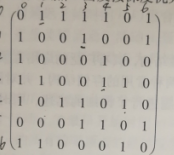 0 1 2 3 4 5 6
0 1 1 1 1 0 1
1 0 0 1 0 0 1
1 0 0 0 1 0 0
1 1 0 0 1 1 0
1 0 1 1 0 1 0
0 0 0 1 1 0 1
6 1 1 0 0 0 1 0